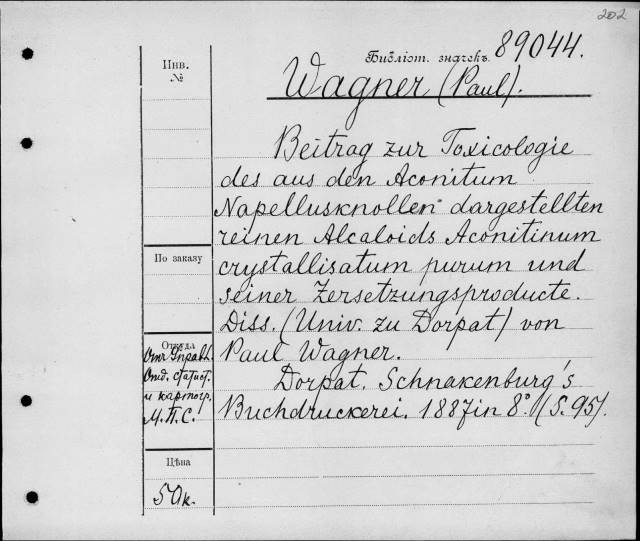 202
Инв.
№
Библіот. значекъ. 89044.
Wagner (Paul).
Beitrag zur Toxicologie
des aus den Aconitum
Napellusknollen dargestellten
reinen Alcaloids Aconitinum
crystallisatum purum und
seiner Zersetzungsproducte.
Diss. (Univ. zu Dorpat) von
Paul Wagner.
Dorpat. Schnakenburg's
Buchdruckerei. 1887 in 8° (S. 95).
По заказу
Откуда
Отд. статист.
и картогр.
М.П.С.
Цѣна
50к.